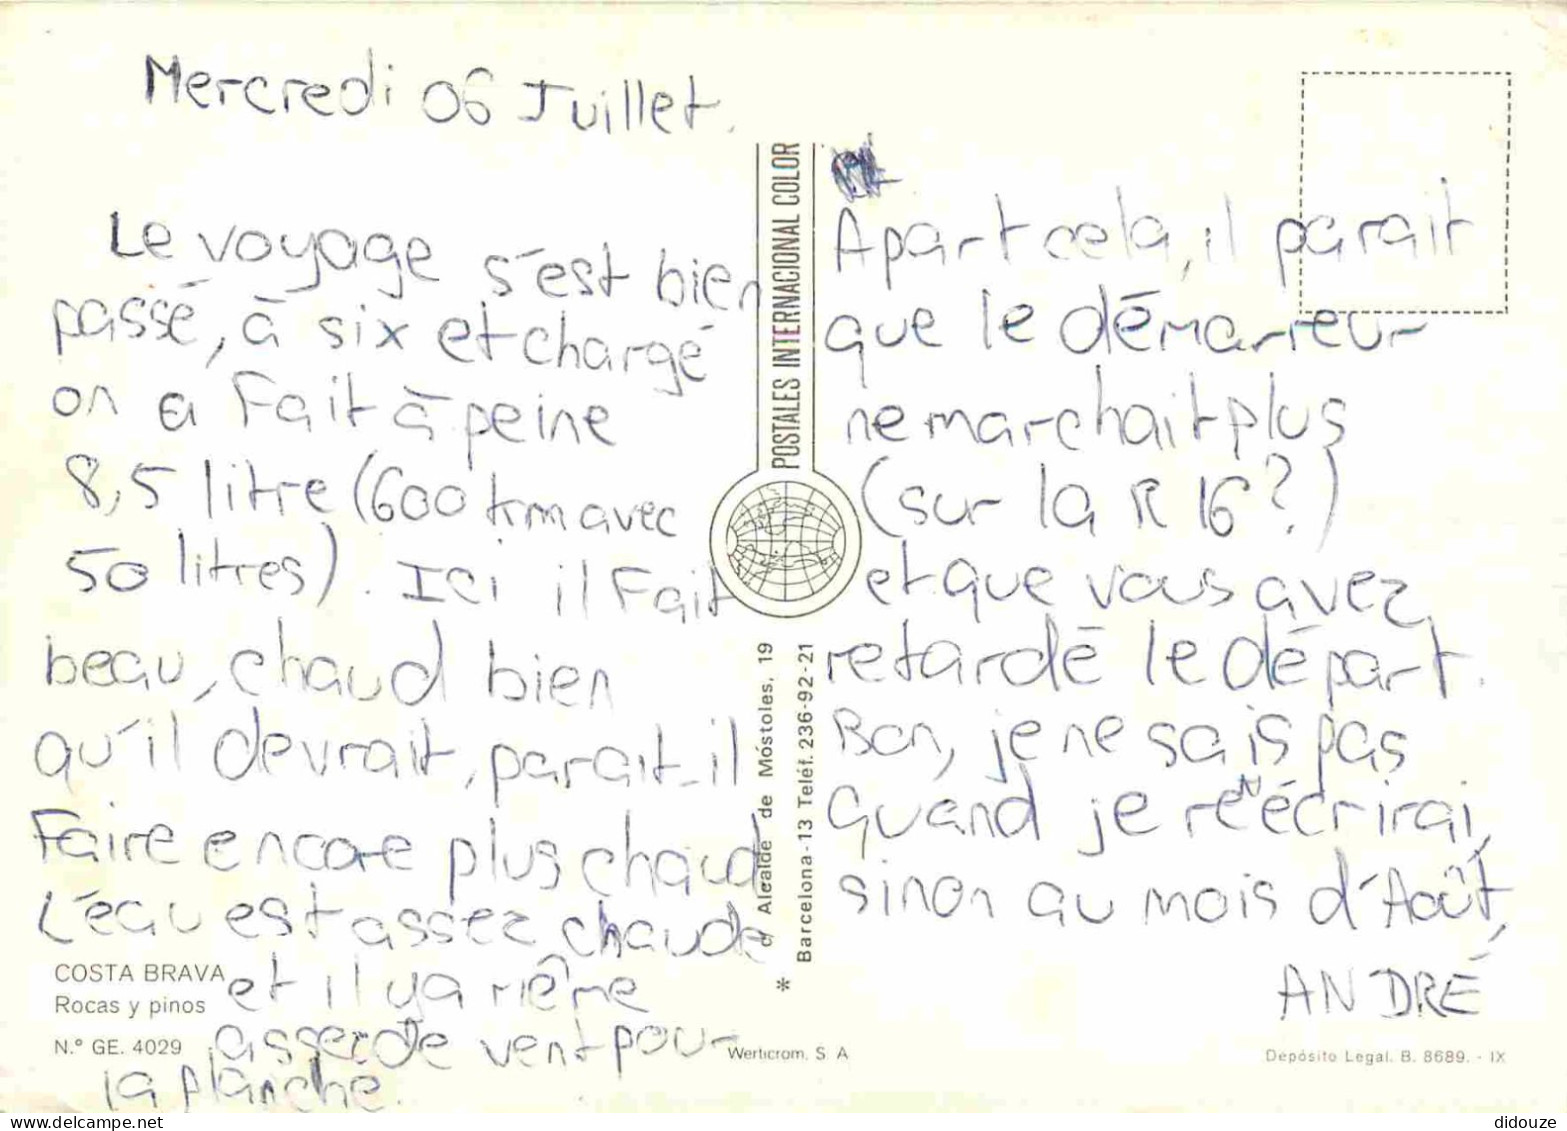 Mercredi 06 Juillet.
Le voyage s'est bien
passé, à six et chargé
on a Fait à peine
8,5 litre (600 km avec
50 litres). Ici il Fait
beau, chaud bien
qu'il devrait, parait-il
Faire encore plus chaud
L'eau est assez chaude
et il y a même
assez de vent pour
la planche.
COSTA BRAVA
Rocas y pinos
N.° GE. 4029
POSTALES INTERNACIONAL COLOR
c/ Alcalde de Móstoles, 19
Barcelona - 13 Teléf. 236-92-21
*
Werticrom, S. A
A part cela, il parait
que le démarreur
ne marchait plus
(sur la R 16?)
et que vous avez
retardé le départ.
Bon, je ne sais pas
quand je réécrirai,
sinon au mois d'Août,
ANDRÉ
Depósito Legal. B. 8689. - IX
didouze